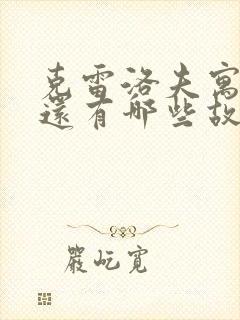 克雷洛夫寓
還有哪些故
嚴屹寬